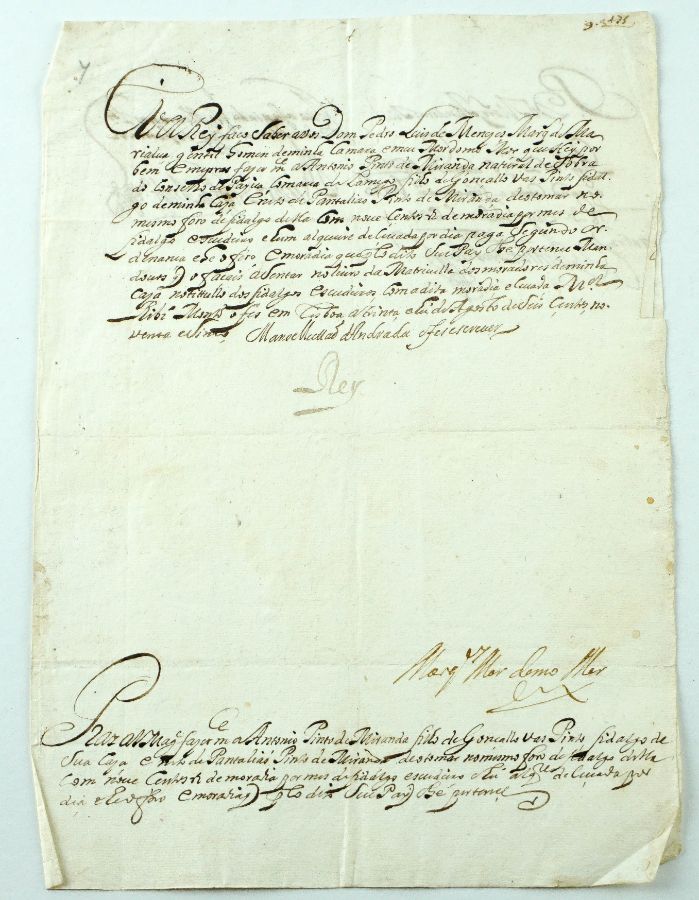 Eu el Rey faço saber a vos Dom Pedro Luis de Meneses Marq. de Ma
rialva gentil homem de minha Camara e meu Mordomo Mor que Hey por
bem e me praz fazer m a Antonio Pinto de Miranda natural de
do Conselho de Payva Comarca de Lamego filho de Goncallo Vas Pinto fidal
go de minha Caza e neto de Pantalião Pinto de Miranda de o tomar no
mesmo foro de fidalgo della com nove Centos rs de moradia por mes de
fidalgo escudeiro e hum alqueire de sevada por dia pago segundo or
denança e he o foro e moradia que pelo dito seu Pay lhe pertence Man
douvos o façais asentar no livro da Matricolla dos moradores de minha
Caza no tittullo dos fidalgos escudeiros com a dita moradia e sevada M.el
Rib.ro o fes em Lixboa a trinta e hu de Agosto de seis Centos no
venta e sinco Manoel d'Andrada o fes escrever
Rey
Marq. Mordomo Mor
Praz a V Mag.e fazer m a Antonio Pinto de Miranda filho de Goncallo Vas Pinto fidalgo de
sua Caza e neto de Pantalião Pinto de Miranda de o tomar no mesmo foro de fidalgo della
com nove Centos rs de moradia por mes de fidalgo escudeiro e hu alq.re de sevada por
dia e he o foro e moradia q pelo dito seu Pay lhe pertence